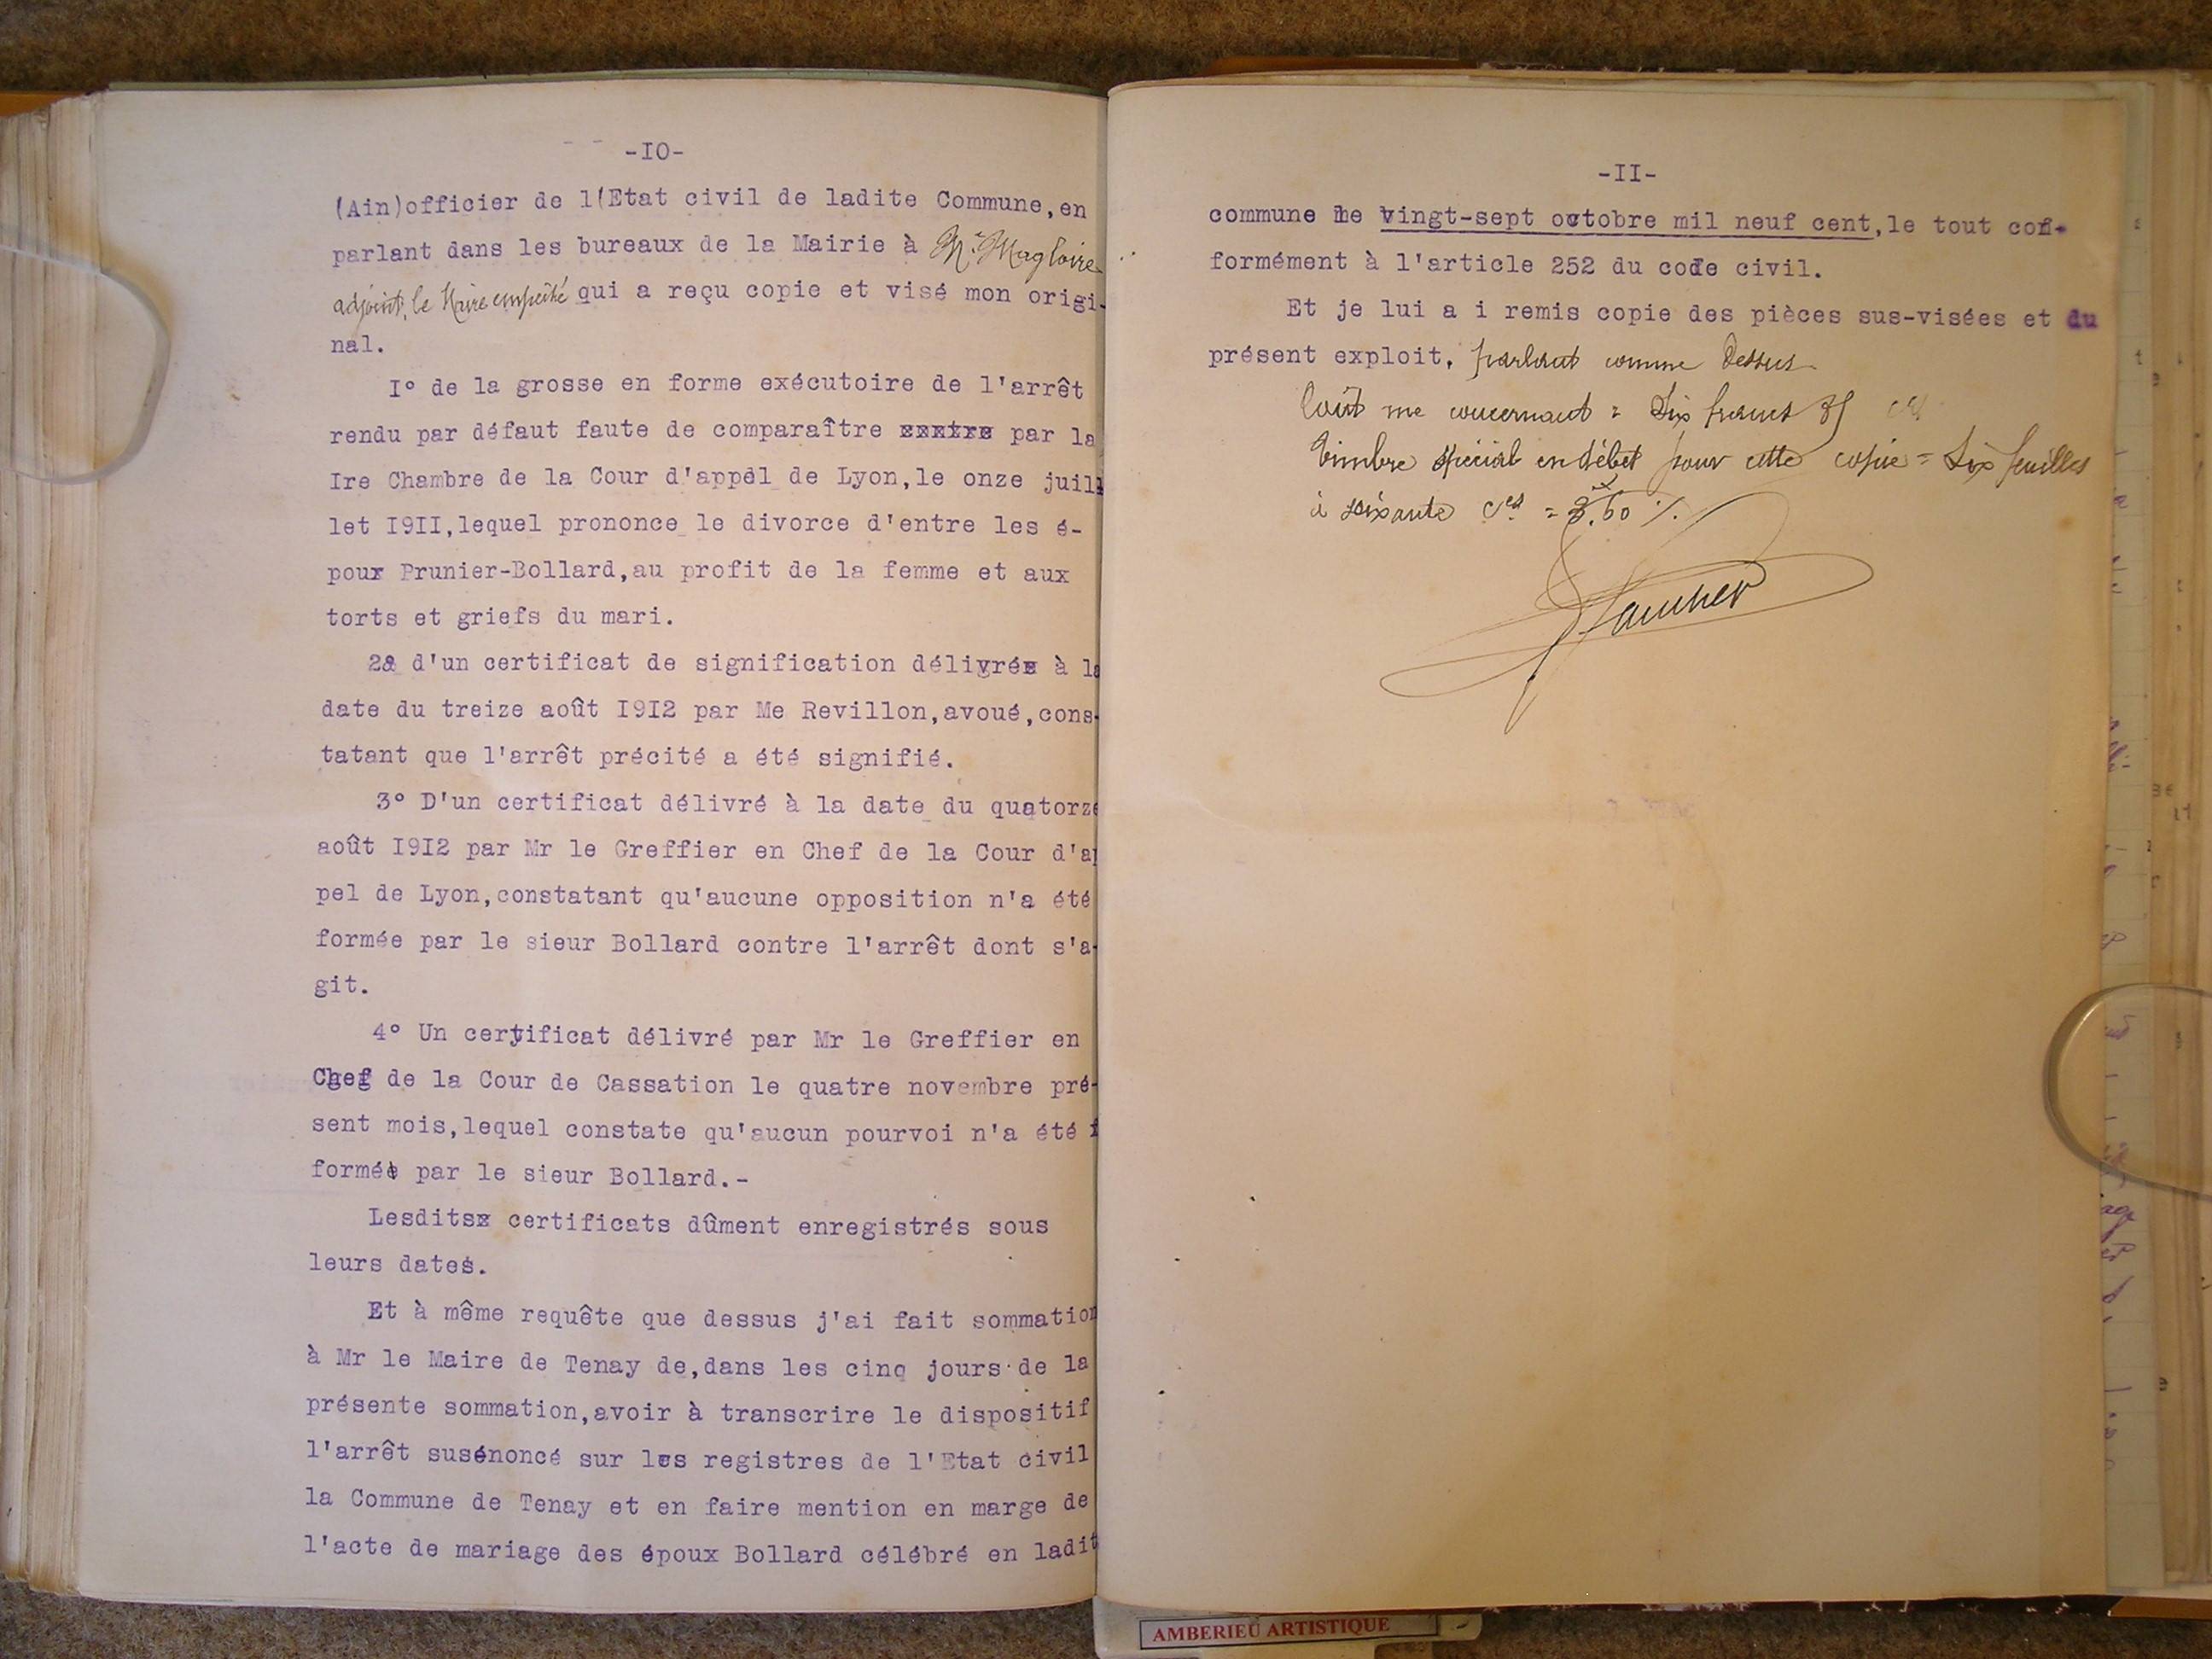 -IO-
(Ain)officier de l(Etat civil de ladite Commune,en
parlant dans les bureaux de la Mairie à Mr Magloire
adjoint, le Maire empêché qui a reçu copie et visé mon origi-
nal.
I° de la grosse en forme exécutoire de l'arrêt
rendu par défaut faute de comparaître par la
Ire Chambre de la Cour d'appel de Lyon,le onze juil
let I9II,lequel prononce le divorce d'entre les é-
poux Prunier-Bollard,au profit de la femme et aux
torts et griefs du mari.
2à d'un certificat de signification délivré à la
date du treize août I9I2 par Me Revillon,avoué,cons-
tatant que l'arrêt précité a été signifié.
3° D'un certificat délivré à la date du quatorze
août I9I2 par Mr le Greffier en Chef de la Cour d'ap
pel de Lyon,constatant qu'aucune opposition n'a été
formée par le sieur Bollard contre l'arrêt dont s'a-
git.
4° Un certificat délivré par Mr le Greffier en
Chef de la Cour de Cassation le quatre novembre pré-
sent mois,lequel constate qu'aucun pourvoi n'a été
formé par le sieur Bollard.-
Lesdits certificats dûment enregistrés sous
leurs dates.
Et à même requête que dessus j'ai fait sommation
à Mr le Maire de Tenay de,dans les cinq jours de la
présente sommation,avoir à transcrire le dispositif
l'arrêt susénoncé sur les registres de l'Etat civil
la Commune de Tenay et en faire mention en marge de
l'acte de mariage des époux Bollard célébré en ladit
-II-
commune le vingt-sept octobre mil neuf cent,le tout con-
formément à l'article 252 du code civil.
Et je lui a i remis copie des pièces sus-visées et du
présent exploit, parlant comme dessus
Coût me concernant = Six francs 35 ces
Timbre spécial en débet pour cette copie = Six feuilles
à soixante ces = 3.60 %
AMBERIEU ARTISTIQUE